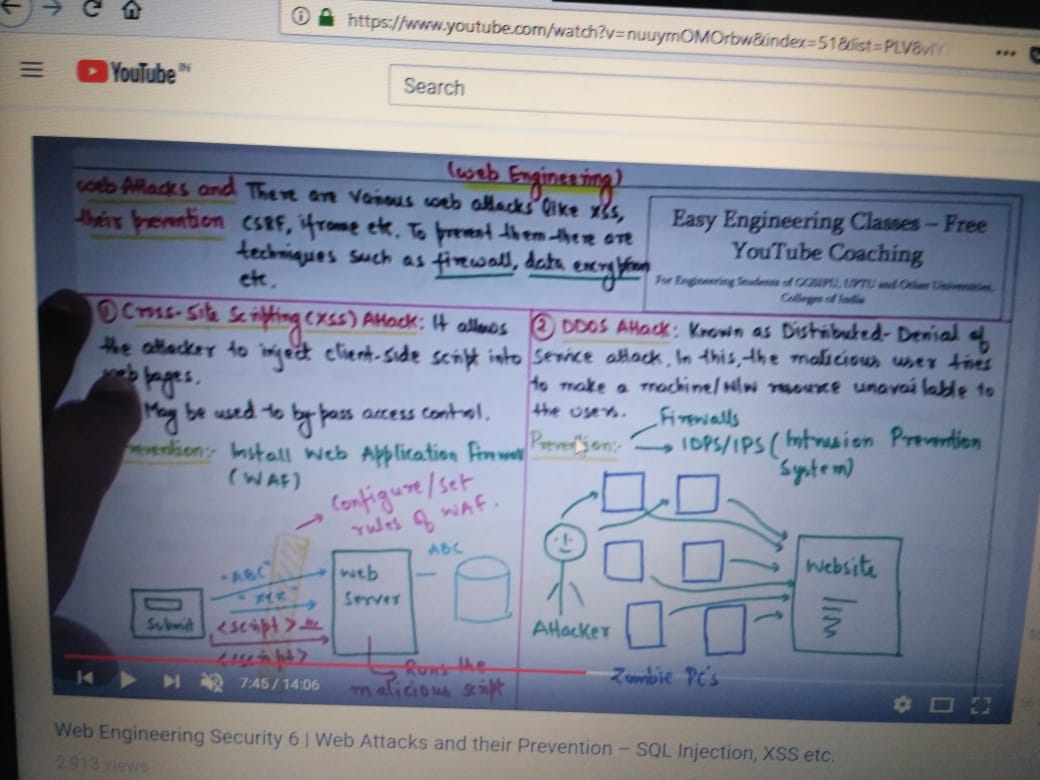 https://www.youtube.com/watch?v=nuuymOMOrbw&index=51&list=PLV8vIY
YouTube IN
Search
(Web Engineering)
Web Attacks and their Prevention
There are various web attacks like XSS,
CSRF, iframe etc. To prevent them there are
techniques such as firewall, data encryption
etc.
Easy Engineering Classes – Free
YouTube Coaching
For Engineering Students of GGSIPU, UPTU and Other Universities,
Colleges of India
① Cross-Site Scripting (XSS) Attack: It allows
the attacker to inject client-side script into
web pages.
May be used to by pass access control.
Prevention:- Install Web Application Firewall
(WAF)
Configure/set
rules of WAF.
"ABC"
"XYZ"
<script>
<script>
Submit
web
server
ABC
Runs the
malicious script
② DDOS Attack: Known as Distributed-Denial of
Service attack. In this, the malicious user tries
to make a machine/N/W resource unavailable to
the users.
Prevention:-
Firewalls
IDPS/IPS (Intrusion Prevention
System)
Attacker
Zombie PC's
Website
7:45 / 14:06
Web Engineering Security 6 | Web Attacks and their Prevention – SQL Injection, XSS etc.
2,913 views